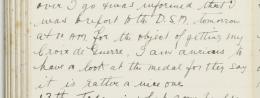 over I go & was informed that I
was to report to the D.S.M. tomorrow
at 10 AM for the object of getting my
Croix de Guerre. I am anxious to
have a look at the medal for they say
it is rather a nice one
13th